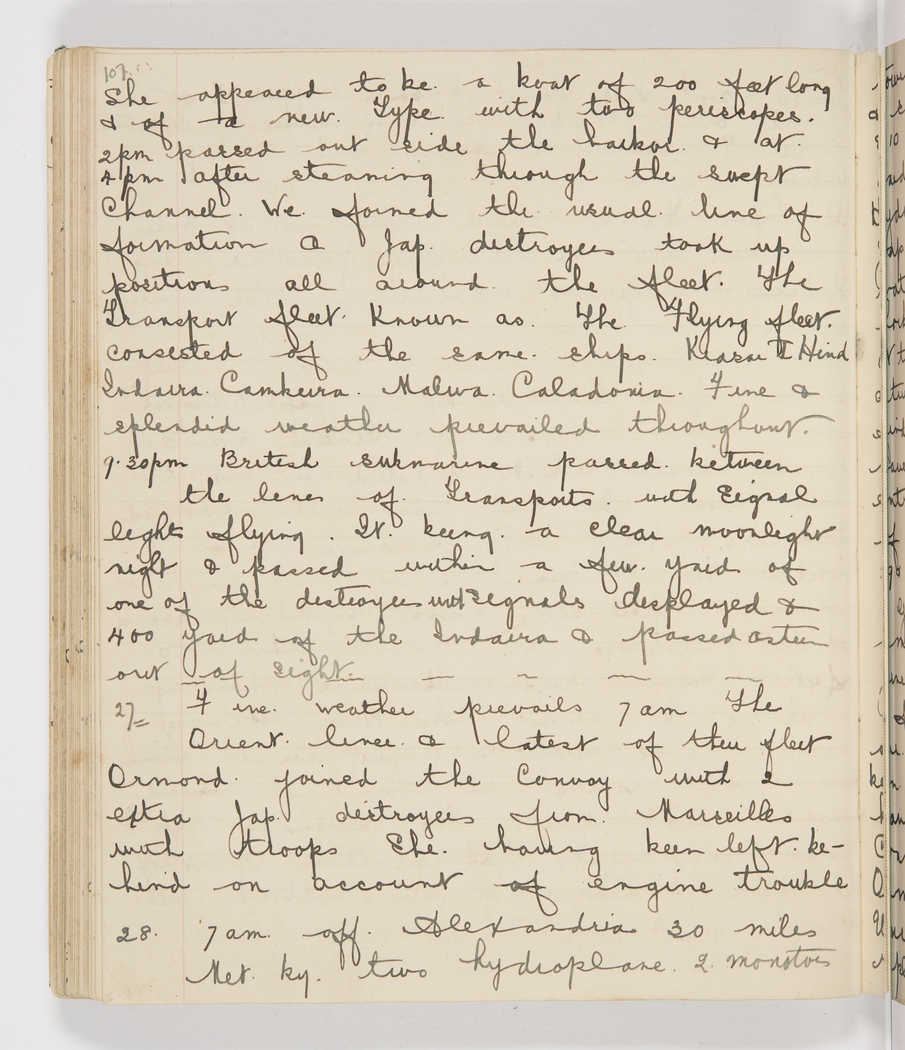 107.
She appeared to be a boat of 200 feet long
& of a new. Type with two periscopes.
2pm passed out side the harbor. & at.
4pm after steaming through the swept
Channel. We. joined the usual. line of
formation & Jap. destroyers took up
positions all around. the fleet. The
Transport fleet. Known as. The Flying fleet.
consisted of the same. ships. Kiasar I Hind
Indaira. Cambeira. Malwa. Caladonia. Fine &
splendid weather prevailed throughout.
9.30pm British submarine passed. between
the lines of. Transports. with Signal
lights flying. It. being. a clear moonlight
night & passed within a few. yards of
one of the destroyers with signals displayed &
400 yards of the Indaira & passed astern
out of sight.
27 Fine. weather prevails 7am The
Orient. liner. & latest of their fleet
Ormond. joined the Convoy with 2
extra Jap. destroyers from. Marseilles
with troops She. having been left. be-
hind on account of engine trouble
28. 7am. off. Alexandria 30 miles
Met. by. two hydroplane. 2. monotors